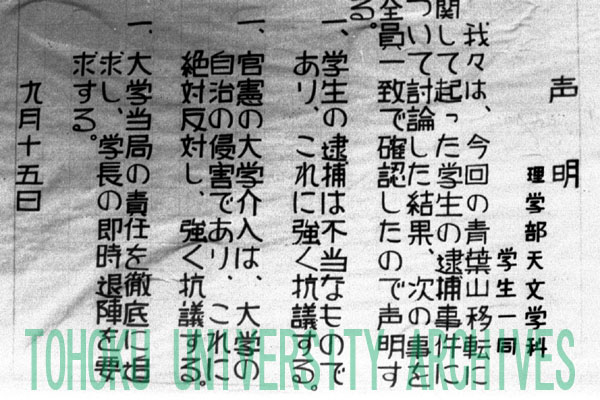 声明
理学部天文学科
学生一同
我々は、今回の青葉山移転に
関して起った学生の逮捕事件に
ついて討論した結果、次の事を
全員一致で確認したので声明す
る。
一、学生の逮捕は不当なもので
あり、これに強く抗議する。
一、官憲の大学介入は、大学の
自治の侵害であり、これに
絶対反対し、強く抗議する。
一、大学当局の責任を徹底に追
求し、学長の即時退陣を要
求する。
九月十五日
TOHOKU UNIVERSTIY ARCHIVES